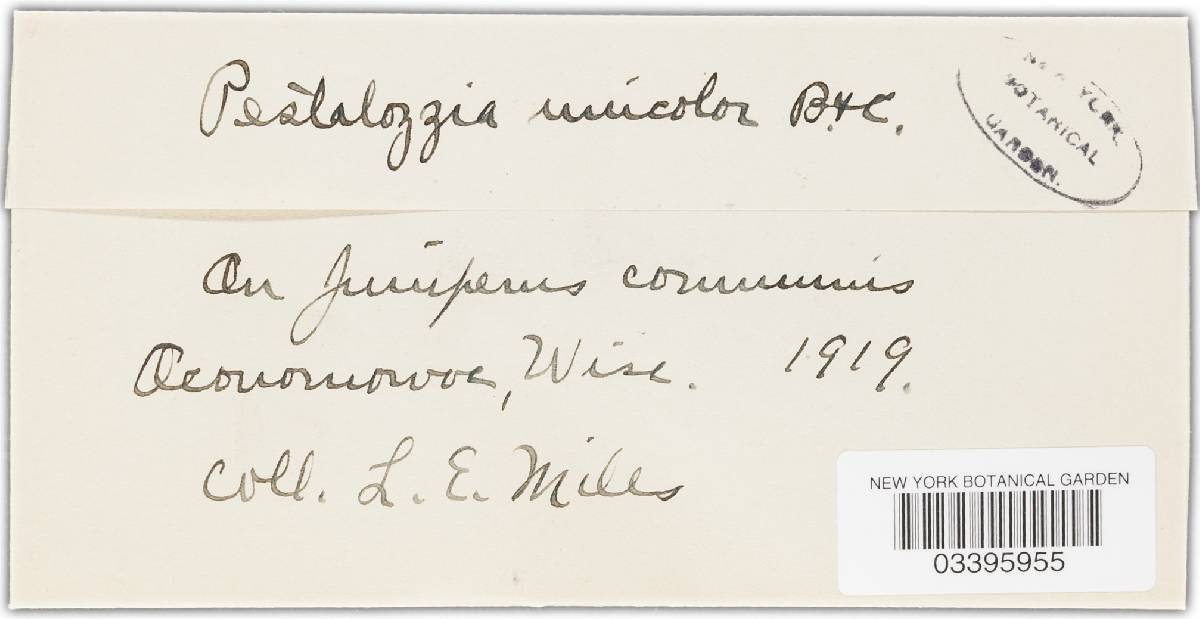 Pestalozzia unicolor B&C.
NEW YORK
BOTANICAL
GARDEN.
On Juniperus communis
Oconomowoc, Wisc. 1919.
Coll. L. E. Miles
NEW YORK BOTANICAL GARDEN
03395955